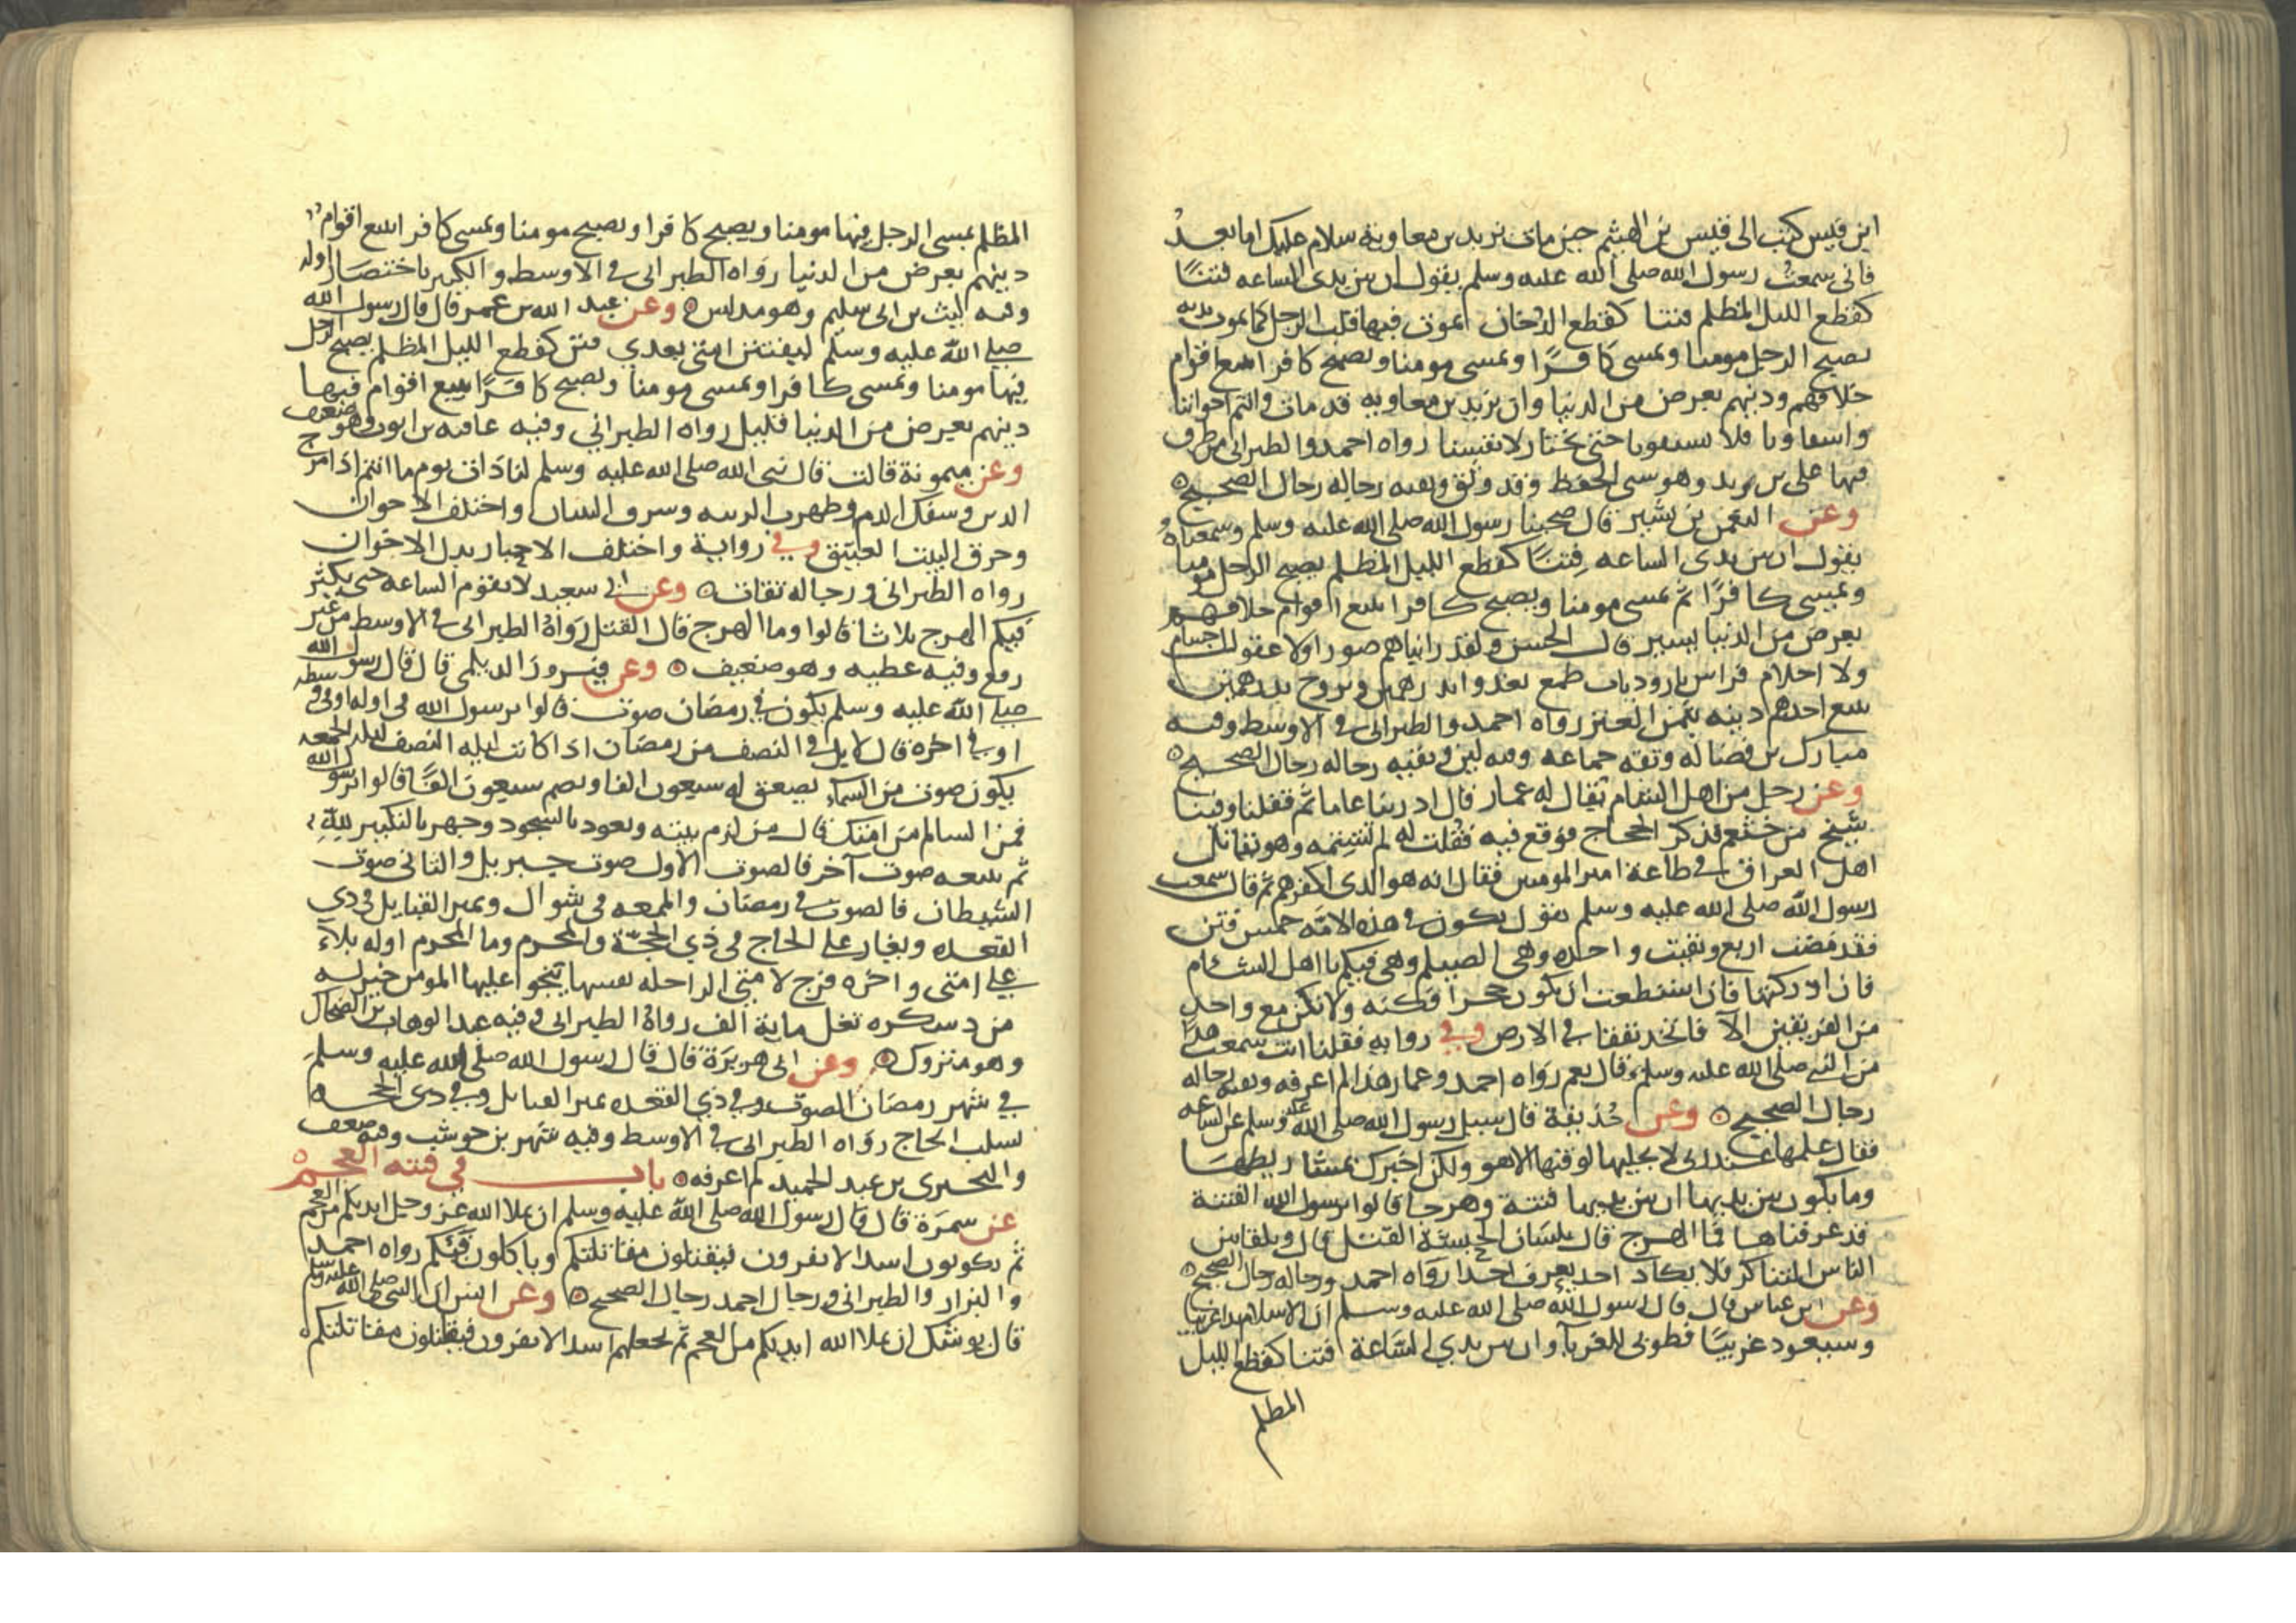 ابن قيس كتب الى قيس بن الهيثم حين مات يزيد بن معاوية سلام عليك اما بعد
فانى سمعت رسول الله صلى الله عليه وسلم يقول ان بين يدى الساعه فتنًا
كقطع الليل المظلم فتنا كقطع الدخان يموت فيها قلب الرجل كما يموت بدنه
يصبح الرجل مومنا ويمسى كافرًا ويمسى مومنا ويصبح كافرا يبيع اقوام
خلاقهم ودينهم بعرض من الدنيا وان يزيد بن معاويه قد مات وانتم اخواننا
واشقاونا فلا تسبقونا حتى نختار لانفسنا رواه احمد والطبرانى من طرق
فيها على بن يزيد وهو سى الحفظ وقد وثق وبقيه رجاله رجال الصحيح
وعن النعمن بن بشير قال صحبنا رسول الله صلى الله عليه وسلم وسمعناه
يقول ان بين يدى الساعه فتنًا كقطع الليل المظلم يصبح الرجل مومنا
ويمسى كافرًا ثم يمسى مومنا ويصبح كافرا يبيع اقوام خلاقهم
بعرض من الدنيا يسير قال الحسن ولقد رايناهم صورا ولا عقول اجسام
ولا احلام فراش نار وذباب طمع يغدو ابد رهمين ويروح بدرهمين
يبيع احدهم دينه بثمن العنز رواه احمد والطبرانى فى الاوسط وفيه
مبارك بن فضاله وثقه جماعه وفيه لين وبقيه رجاله رجال الصحيح
وعن رجل من اهل الشام يقال له عمار قال ادربنا عاما ثم قفلنا وفينا
شيخ من خثعم فذكر الحجاج فوقع فيه فقلت له لم تشتمه وهو يقاتل
اهل العراق فى طاعة امير المومنين فقال انه هو الذى اكفرهم ثم قال سمعت
رسول الله صلى الله عليه وسلم يقول يكون فى هذه الامه خمس فتن
فقد مضت اربع وبقيت واحده وهى الصيلم وهى فيكم يا اهل الشام
فان ادركتها فان استطعت ان تكون حجرا فكنه ولا تكن مع واحد
من الفريقين الا فاتخد نفقا فى الارض وفى روايه فقلنا انت سمعت هذا
من النبى صلى الله عليه وسلم قال نعم رواه احمد وعمار هذا لم اعرفه وبقيه رجاله
رجال الصحيح وعن حذيفة قال سيل رسول الله صلى الله عليه وسلم عن الساعه
فقال علمها عند ربى لا يجليها لوقتها الا هو ولكن اخبرك بمشاريطها
وما يكون بين يديها ان بين يديها فتنة وهرجا قالوا يرسول الله الفتنة
قد عرفناها فما الهرج قال بلسان الحبشة القتل قال ويلقا بين
الناس التناكر فلا يكاد احد يعرف احدا رواه احمد ورجاله رجال الصحيح
وعن ابن عباس قال قال رسول الله صلى الله عليه وسلم ان الاسلام بدا غريبا
وسيعود غريبًا فطوبى للغربآ وان بين يدي الساعة فتنا كقطع الليل
المظلم
المظلم يمسى الرجل فيها مومنا ويصبح كافرا ويصبح مومنا ويمسى كافر ابيع اقوام
دينهم بعرض من الدنيا رواه الطبرانى فى الاوسط والكبير باختصار اوله
وفيه ليث بن ابى سليم وهو مدلس وعن عبد الله بن عمر قال قال رسول الله
صلى الله عليه وسلم ليفتنن امتى بعدي فتن كقطع الليل المظلم يصبح الرجل
فيها مومنا ويمسى كافرا ويمسى مومنا ويصبح كافرًا يبيع اقوام فيها
دينهم بعرض من الدنيا قليل رواه الطبراني وفيه عافيه بن ايوب وهو ضعيف
وعن ميمونة قالت قال نبى الله صلى الله عليه وسلم لنا ذات يوم ما انتم اذا مرج
الدين وسفك الدم وظهرت الزينه وشرف البنيان واختلف الاخوان
وحرق البيت العتيق وفي رواية واختلف الاخبار بدل الاخوان
رواه الطبرانى ورجاله ثقات وعن ابى سعيد لا تقوم الساعه حتى يكثر
فيكم الهرج ثلاثا قالوا وما الهرج قال القتل رواه الطبرانى فى الاوسط من غير
رفع وفيه عطيه وهو ضعيف وعن فيروز الديلمى قال قال رسول الله
صلى الله عليه وسلم يكون فى رمضان صوت قالوا يرسول الله فى اوله او فى وسطه
او فى اخره قال لا بل فى النصف من رمضان اذا كانت ليله النصف ليله الجمعه
يكون صوت من السماء يصعق له سبعون الفا ويصم سبعون الفًا قالوا يرسول الله
فمن السالم من امتك قال من لزم بيته وتعوذ بالسجود وجهر بالتكبير لله
ثم يتبعه صوت آخر فالصوت الاول صوت جبريل والثانى صوت
الشيطان فالصوت فى رمضان والمعمعه فى شوال وتميز القبايل فى ذي
القعده ويغار على الحاج فى ذي الحجة والمحرم وما المحرم اوله بلآء
على امتى واخره فرج لامتى الراحله بقتبها ينجوا عليها المومن خير له
من دسكره تغل ماية الف رواه الطبرانى وفيه عبد الوهاب بن الضحاك
وهو متروك وعن ابى هريرة قال قال رسول الله صلى الله عليه وسلم
فى شهر رمضان الصوت وفى ذي القعده تميز القبايل وفى ذى الحجه
يسلب الحاج رواه الطبرانى فى الاوسط وفيه شهر بن حوشب وفيه ضعف
والبخترى بن عبد الحميد لم اعرفه باب فى فتنه العجم
عن سمرة قال قال رسول الله صلى الله عليه وسلم ان يملا الله عز وجل ايديكم من العجم
ثم يكونون اسدا لا يفرون فيقتلون مقاتلتكم وياكلون فيئكم رواه احمد
والبزار والطبرانى ورجال احمد رجال الصحيح وعن انس ان النبى صلى الله عليه وسلم
قال يوشك ان يملا الله ايديكم من العجم ثم يجعلهم اسدا لا يفرون فيقتلون مقاتلتكم